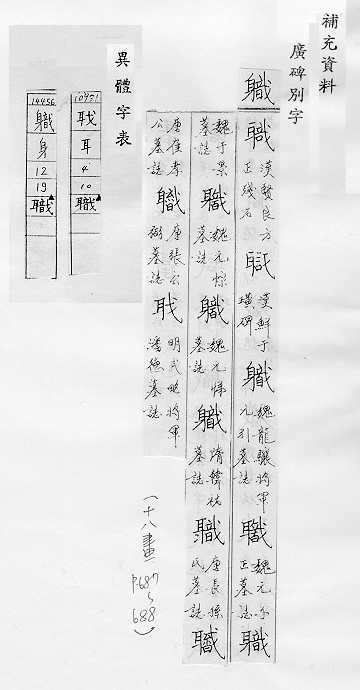 補充資料
廣碑別字
職
職 漢賢良方正殘石
職 漢鮮于璜碑
職 魏龍驤將軍元引墓誌
職 魏元
正墓誌
職
魏于景墓誌
職 魏元悰墓誌
職 魏元悌墓誌
職 隋韓祐墓誌
職 唐長孫氏墓誌
職
唐崔孝公墓誌
職 唐張公
墓誌
耺 明武略將軍潘德墓誌
(十八畫)
P687
~
688
異體字表
10451
耺
耳
4
10
職
14456
軄
身
12
19
職